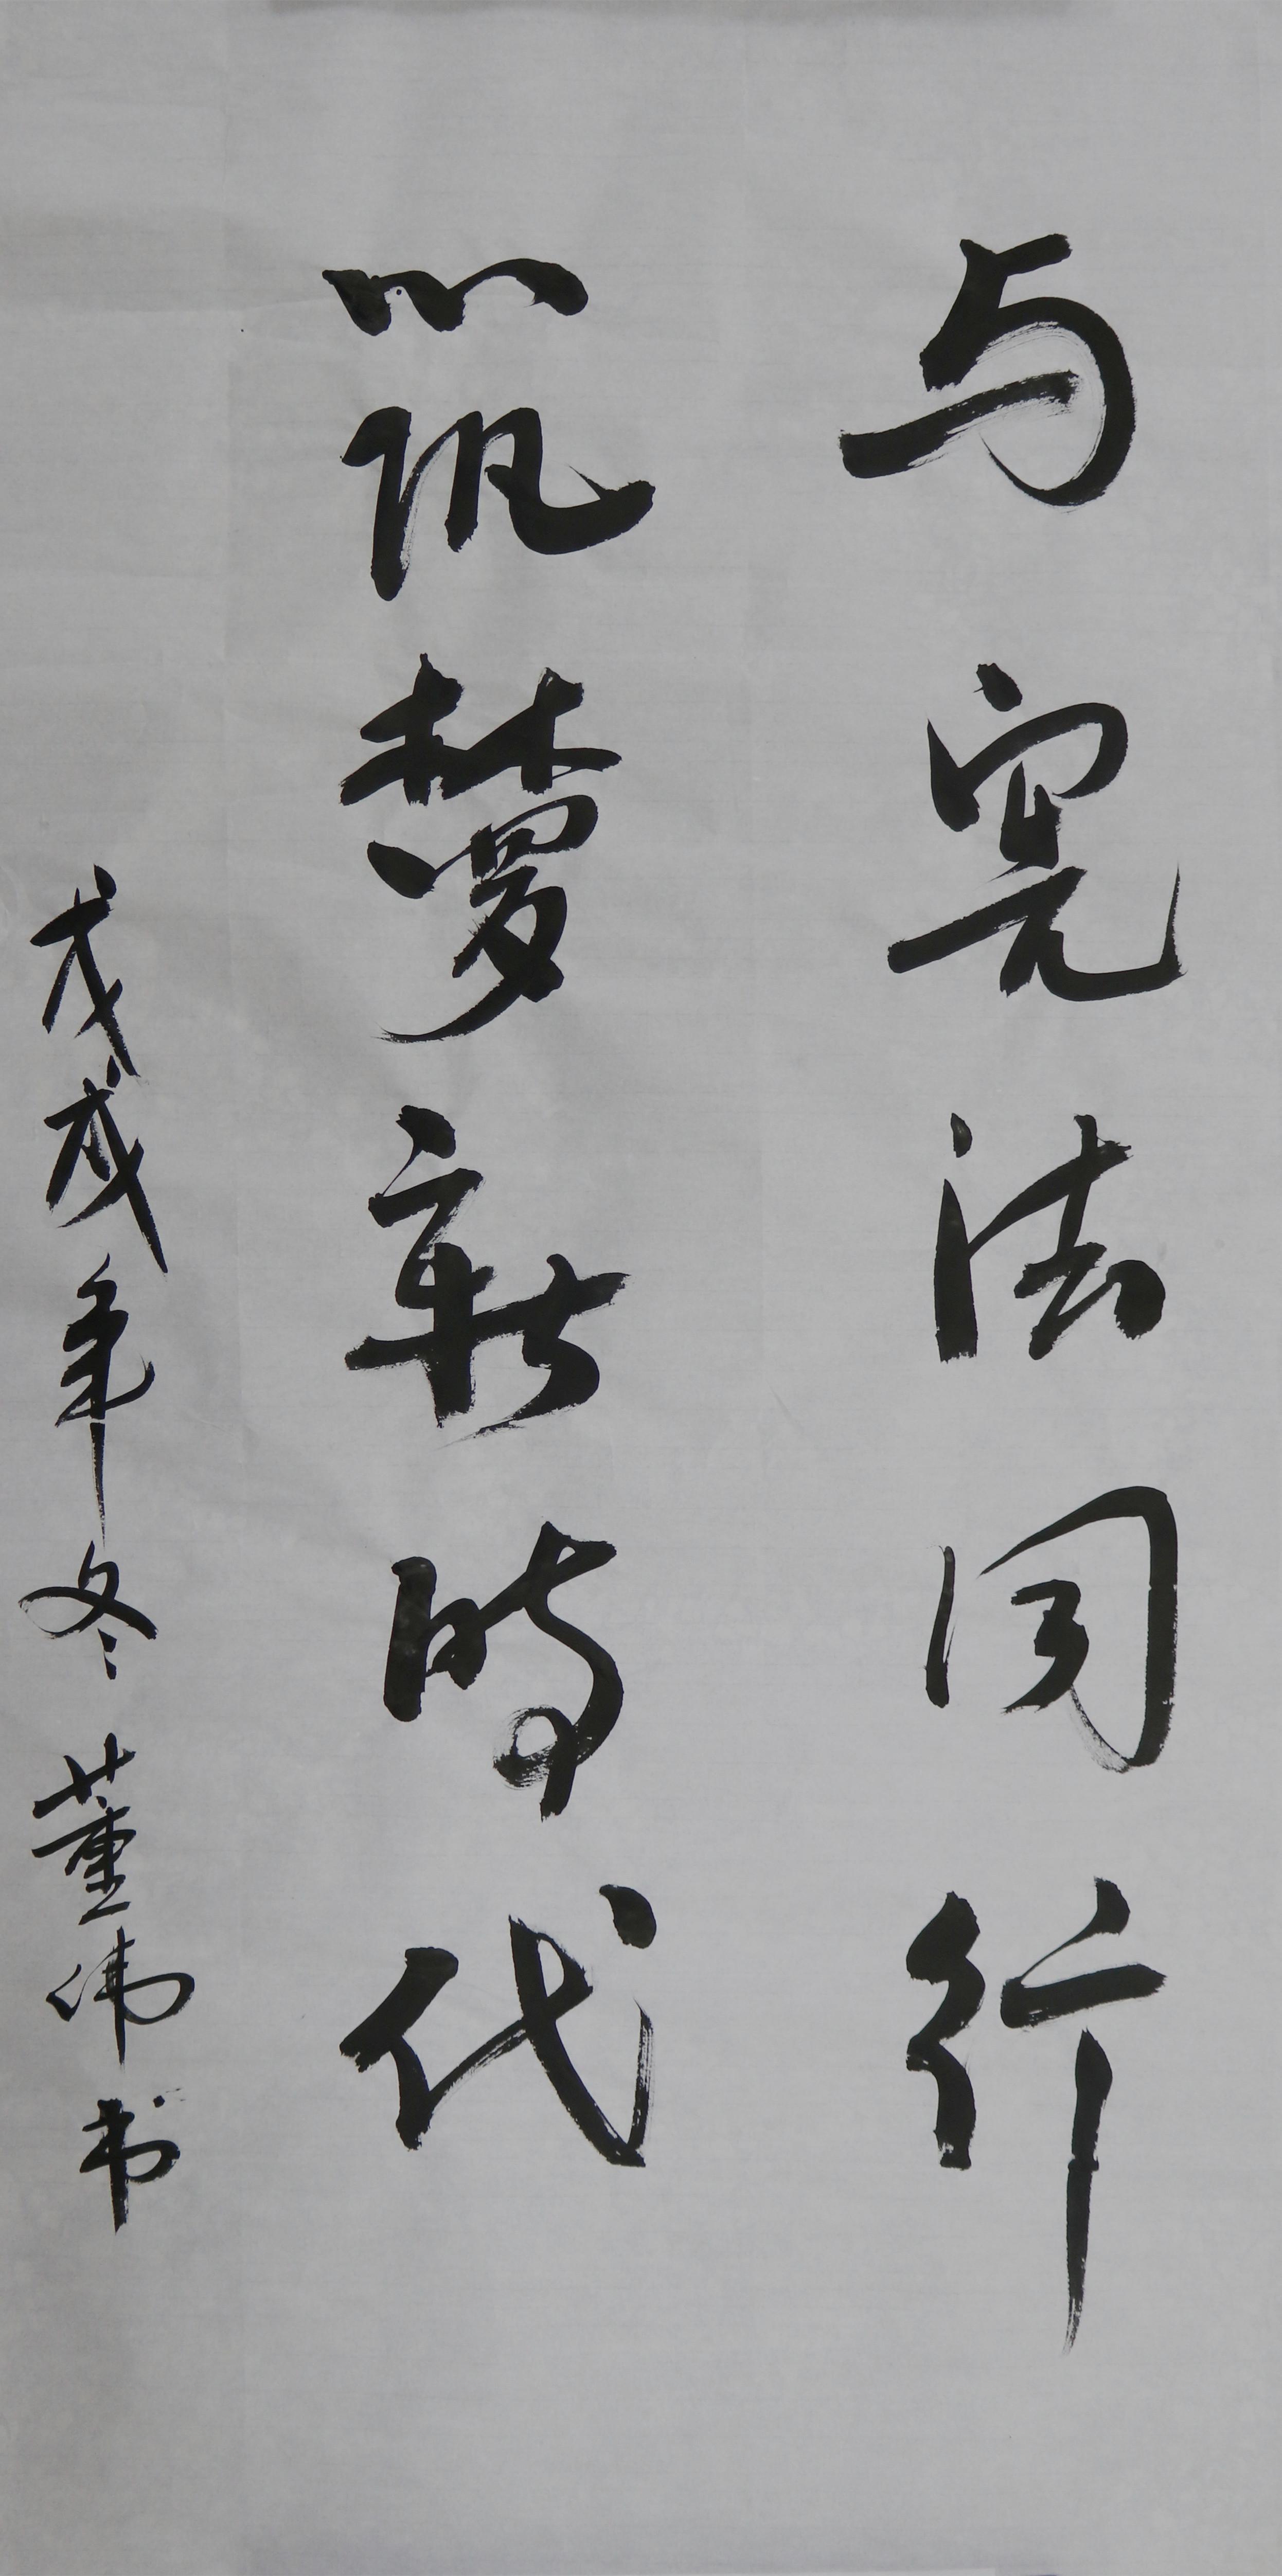 与宪法同行
筑梦新时代
戊戌年冬 董伟书